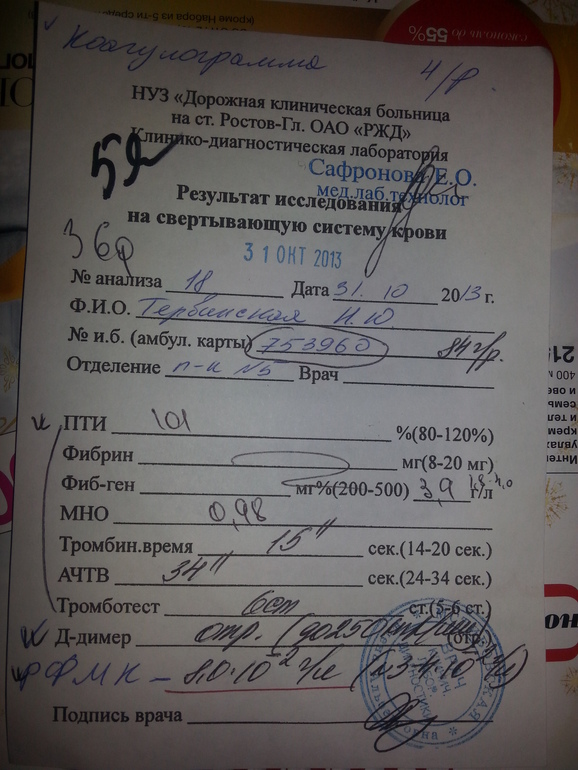 сэкономь до 55%
(кроме Набора из 5-ти средств
Коагулограмма
НУЗ «Дорожная клиническая больница
на ст. Ростов-Гл. ОАО «РЖД»
Клинико-диагностическая лаборатория
Сафронова Е.О.
мед.лаб.технолог
Результат исследования
на свертывающую систему крови
31 ОКТ 2013
№ анализа 18 Дата 31. 10 2013 г.
Ф.И.О. Н.Ю.
№ и.б. (амбул. карты) 753960 84 г/р.
Отделение п-к №5 Врач
ПТИ 101 %(80-120%)
Фибрин мг(8-20 мг)
Фиб-ген мг%(200-500) 3,9 г/л 1,8-4,0
МНО 0,98
Тромбин.время 15" сек.(14-20 сек.)
АЧТВ 34" сек.(24-34 сек.)
Тромботест 6ст ст.(5-6 ст.)
Д-димер отр. (до 250 (отр.)
РФМК – 8,0·10⁻² г/л
Подпись врача